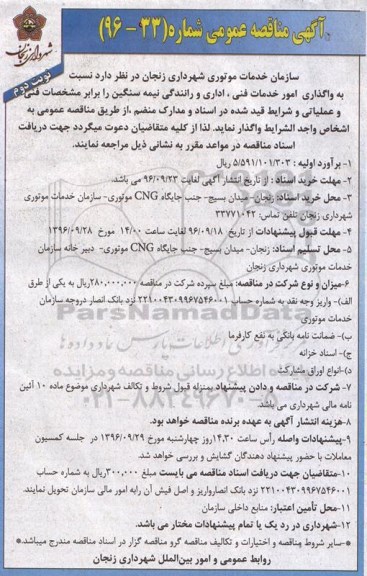 آگهی مناقصه عمومی شماره(۳۳ - ۹۶)
شهرداری زنجان
نوبت دوم
سازمان خدمات موتوری شهرداری زنجان در نظر دارد نسبت
به واگذاری امور خدمات فنی ، اداری و رانندگی نیمه سنگین را برابر مشخصات فنی
و عملیاتی و شرایط قید شده در اسناد و مدارک منضم ،از طریق مناقصه عمومی به
اشخاص واجد الشرایط واگذار نماید. لذا از کلیه متقاضیان دعوت میگردد جهت دریافت
اسناد مناقصه در مواعد مقرر به نشانی ذیل مراجعه نمایند.
۱- برآورد اولیه : ۵/۵۹۱/۱۰۱/۳۰۳ ریال
۲- مهلت خرید اسناد : از تاریخ انتشار آگهی لغایت ۹۶/۰۹/۲۳ می باشد.
۳- محل خرید اسناد: زنجان- میدان بسیج- جنب جایگاه CNG موتوری- سازمان خدمات موتوری
شهرداری زنجان تلفن تماس: ۳۳۷۷۱۰۴۲
۴- مهلت قبول پیشنهادات از تاریخ ۹۶/۰۹/۱۸ لغایت ساعت ۱۴/۰۰ مورخ ۱۳۹۶/۰۹/۲۸
۵- محل تسلیم اسناد: زنجان- میدان بسیج- جنب جایگاه CNG موتوری- دبیر خانه سازمان
خدمات موتوری شهرداری زنجان
۶-میزان و نوع شرکت در مناقصه: مبلغ سپرده شرکت در مناقصه ۲۸۰,۰۰۰,۰۰۰ریال به یکی از طرق
الف)- واریز وجه نقد به شماره حساب ۲۲۱۰۰۴۳۰۹۹۶۷۵۴۶۰۰۱ نزد بانک انصار دروجه سازمان
خدمات موتوری
ب)- ضمانت نامه بانکی به نفع کارفرما
ج)- اسناد خزانه
د)-انواع اوراق مشارکت
۷- شرکت در مناقصه و دادن پیشنهاد بمنزله قبول شروط و تکالف شهرداری موضوع ماده ۱۰ آئین
نامه مالی شهرداری می باشد.
۸-هزینه انتشار آگهی به عهده برنده مناقصه خواهد بود.
۹-پیشنهادات واصله رأس ساعت ۱۴,۳۰روز چهارشنبه مورخ ۱۳۹۶/۰۹/۲۹ در جلسه کمسیون
معاملات با حضور پیشنهاد دهندگان گشایش و بررسی خواهد شد.
۱۰-متقاضیان جهت دریافت اسناد مناقصه می بایست مبلغ ۳۰۰,۰۰۰ریال به شماره حساب
۲۲۱۰۰۴۳۰۹۹۶۷۵۴۶۰۰۱ نزد بانک انصارواریز و اصل فیش آن رابه امور مالی سازمان تحویل نمایند.
۱۱-محل تأمین اعتبار: منابع داخلی سازمان
۱۲-شهرداری در رد یک یا تمام پیشنهادات مختار می باشد.
*-سایر شروط مناقصه و اختیارات و تکالیف مناقصه گرو مناقصه گزار در اسناد مناقصه مندرج میباشد.*
روابط عمومی و امور بین‌الملل شهرداری زنجان
ParsNamadData
۰۲۱-۸۸۳۴۹۶۷۰-۵